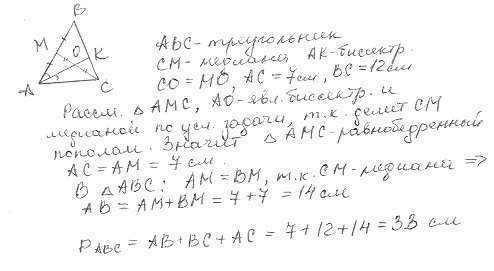 B
M
O
K
A
C
ABC - треугольник
CM - медиана, AK - биссектр.
CO = MO, AC = 7 см, BC = 12 см
Рассм. △ AMC, AO - явл. биссектр. и
медианой по усл. задачи, т.к. делит CM
пополам. Значит △ AMC - равнобедренный
AC = AM = 7 см.
В △ ABC: AM = BM, т.к. CM - медиана =>
AB = AM + BM = 7 + 7 = 14 см
P ABC = AB + BC + AC = 7 + 12 + 14 = 33 см